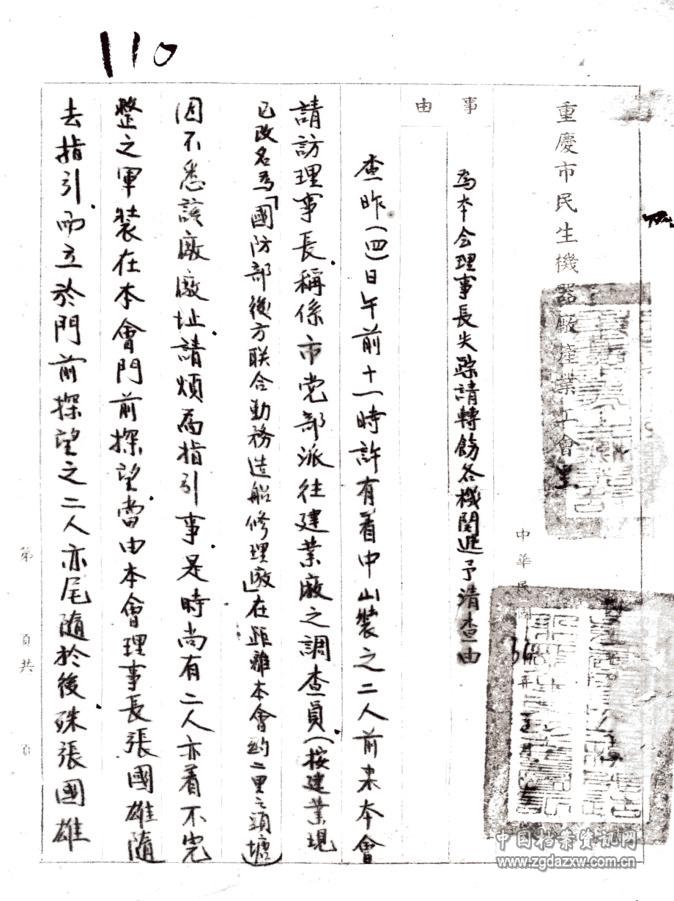 110
重慶市民生機器廠產業工會
中華民
事由
為本會理事長失踪請轉飭各機関迅予清查由
查昨(四)日午前十一時許有着中山裝之二人前來本會
請訪理事長稱係市党部派往建業廠之調查員(按建業現
已改名為「國防部後方联合勤務造船修理廠」在距離本會約二里之頭塘)
因不悉該廠廠址請煩為指引事是時尚有二人亦着不完
整之軍裝在本會門前探望當由本會理事長張國雄隨
去指引而立於門前探望之二人亦尾隨於後殊張國雄
第 頁共 頁
中国档案资讯网
www.zgdazxw.com.cn